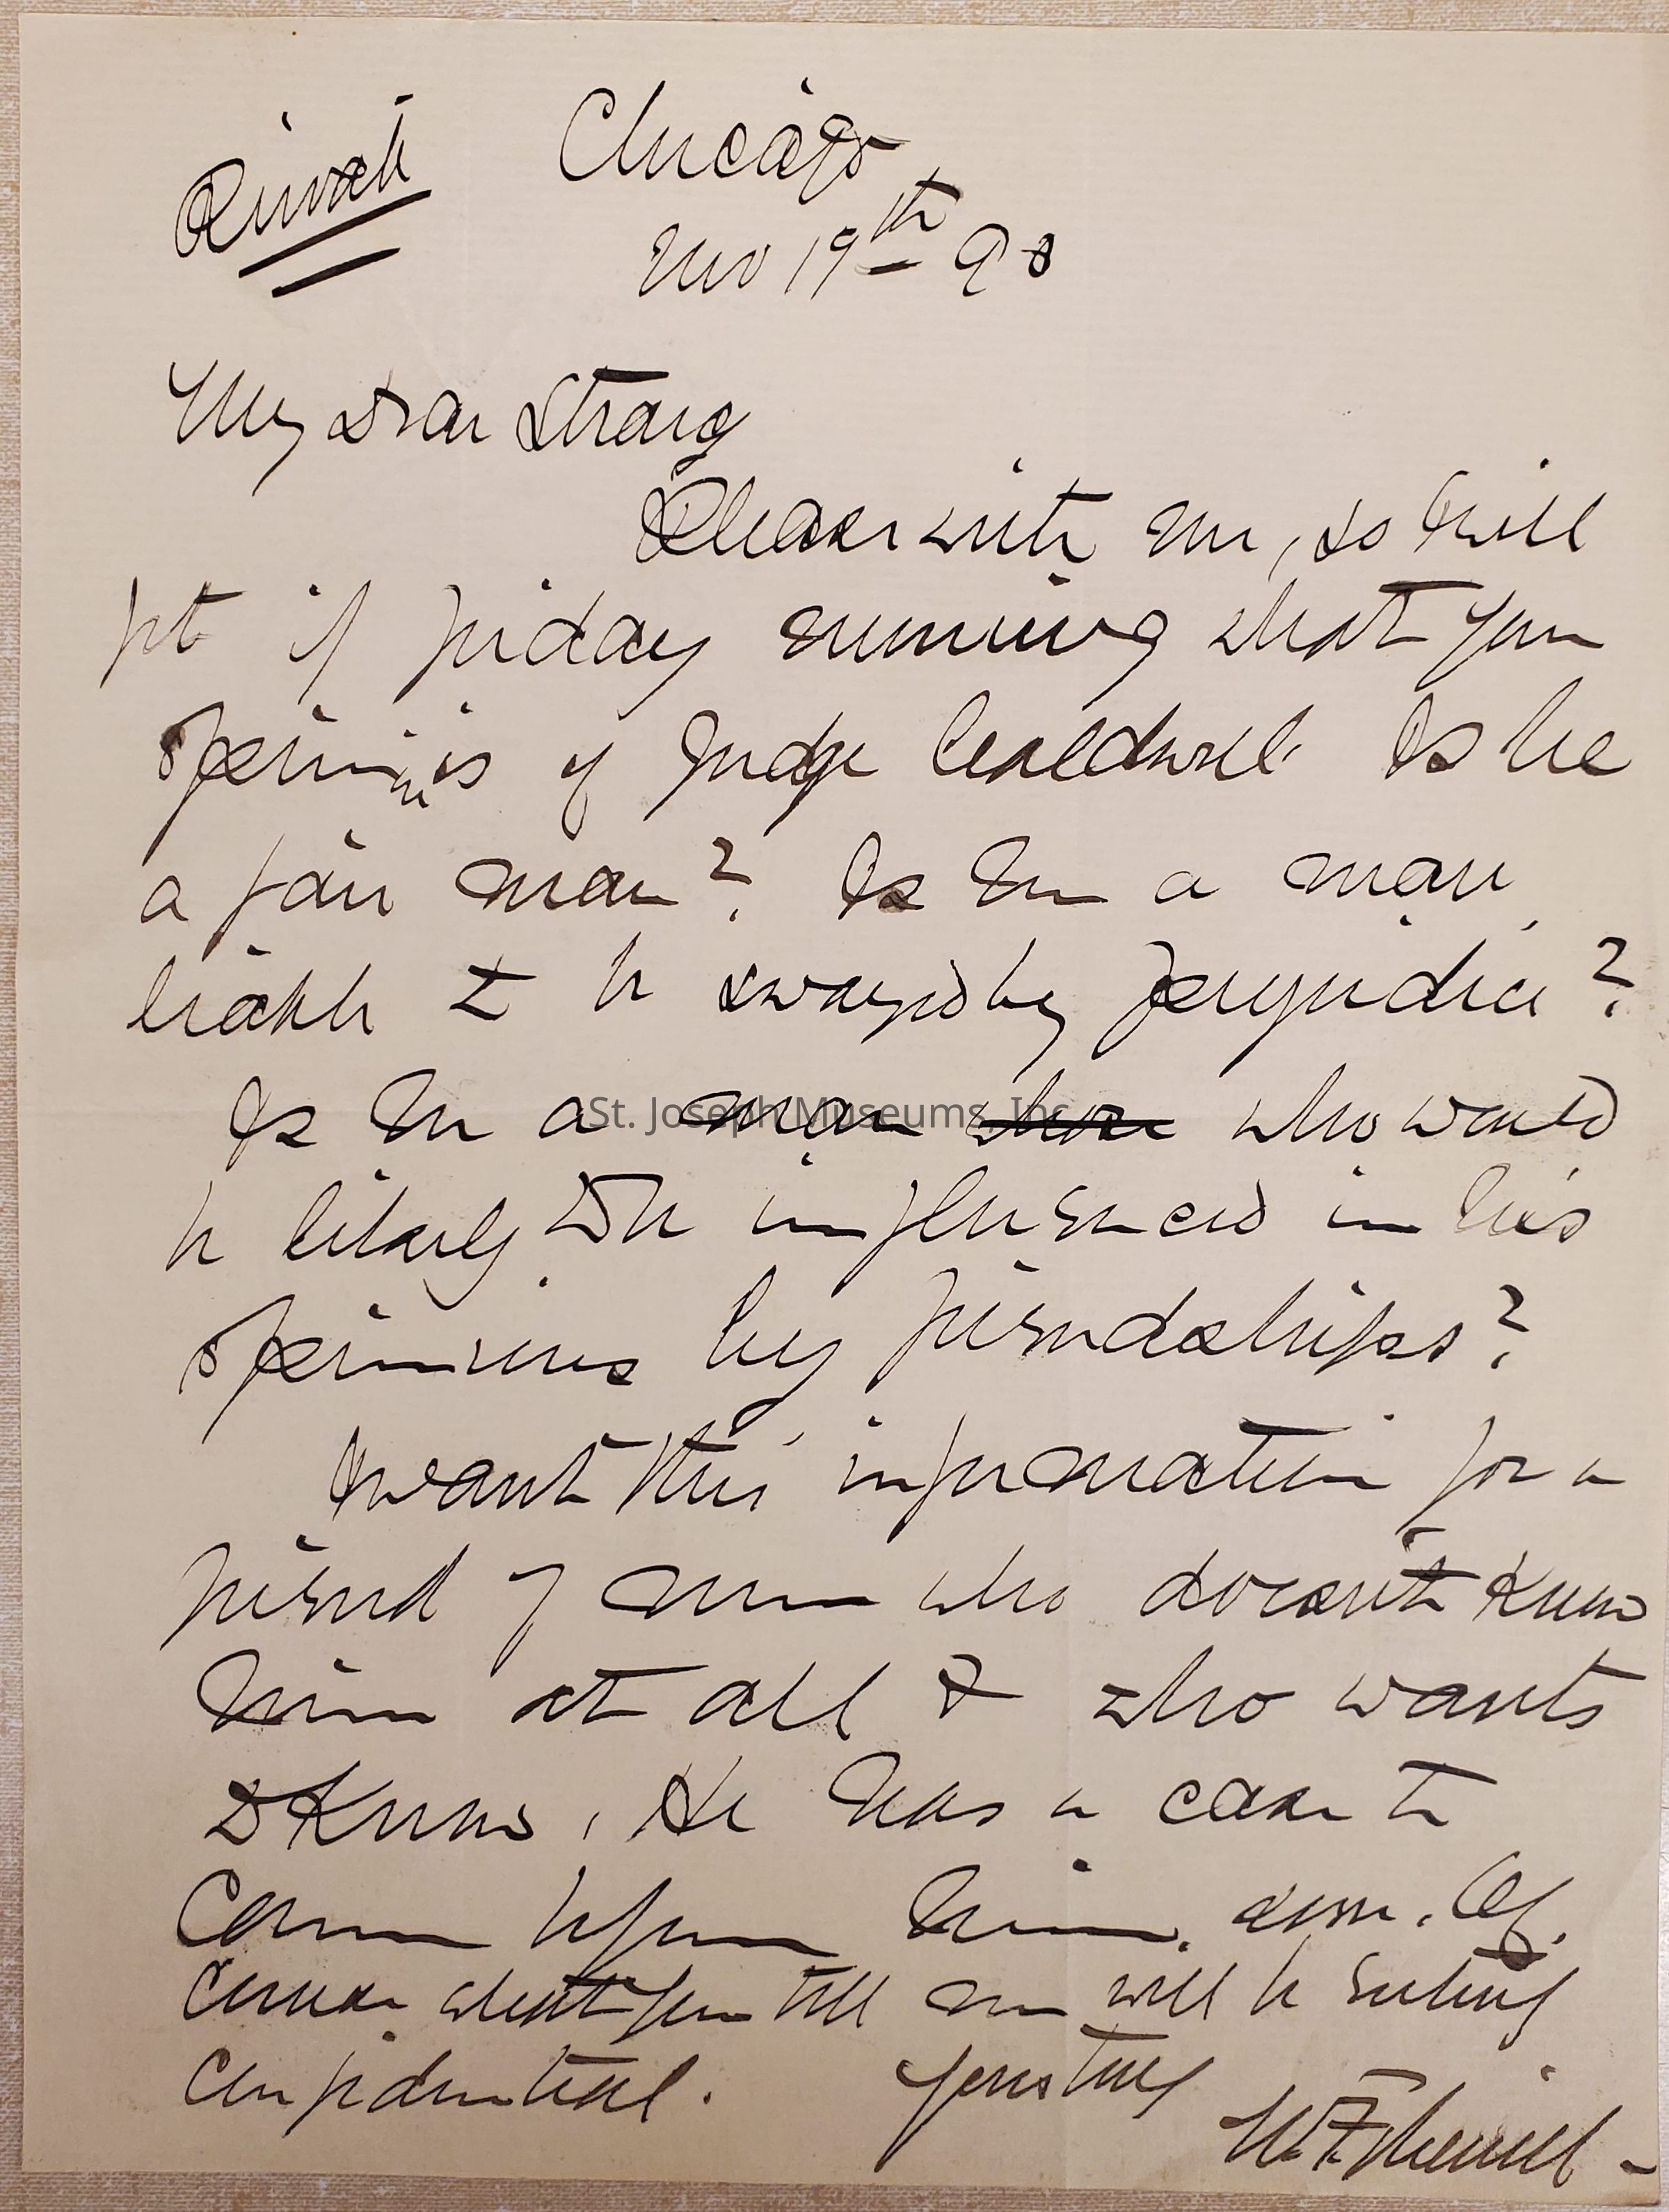 Private
Chicago
Nov 19th 90
My Dear Strong
Please write me, so I will
get it friday morning what your
opinion is of Judge Caldwell Is he
a fair man? Is he a man
liable to be swayed by prejudice?
Is he a man who would
be likely to be influenced in his
opinions by friendships?
I want this information for a
friend of mine who doesn't know
him at all & who wants
to know, He has a case to
come before him soon. Of
course what you tell me will be entirely
confidential. Yours truly
W F Merrill
St. Joseph Museums, Inc.